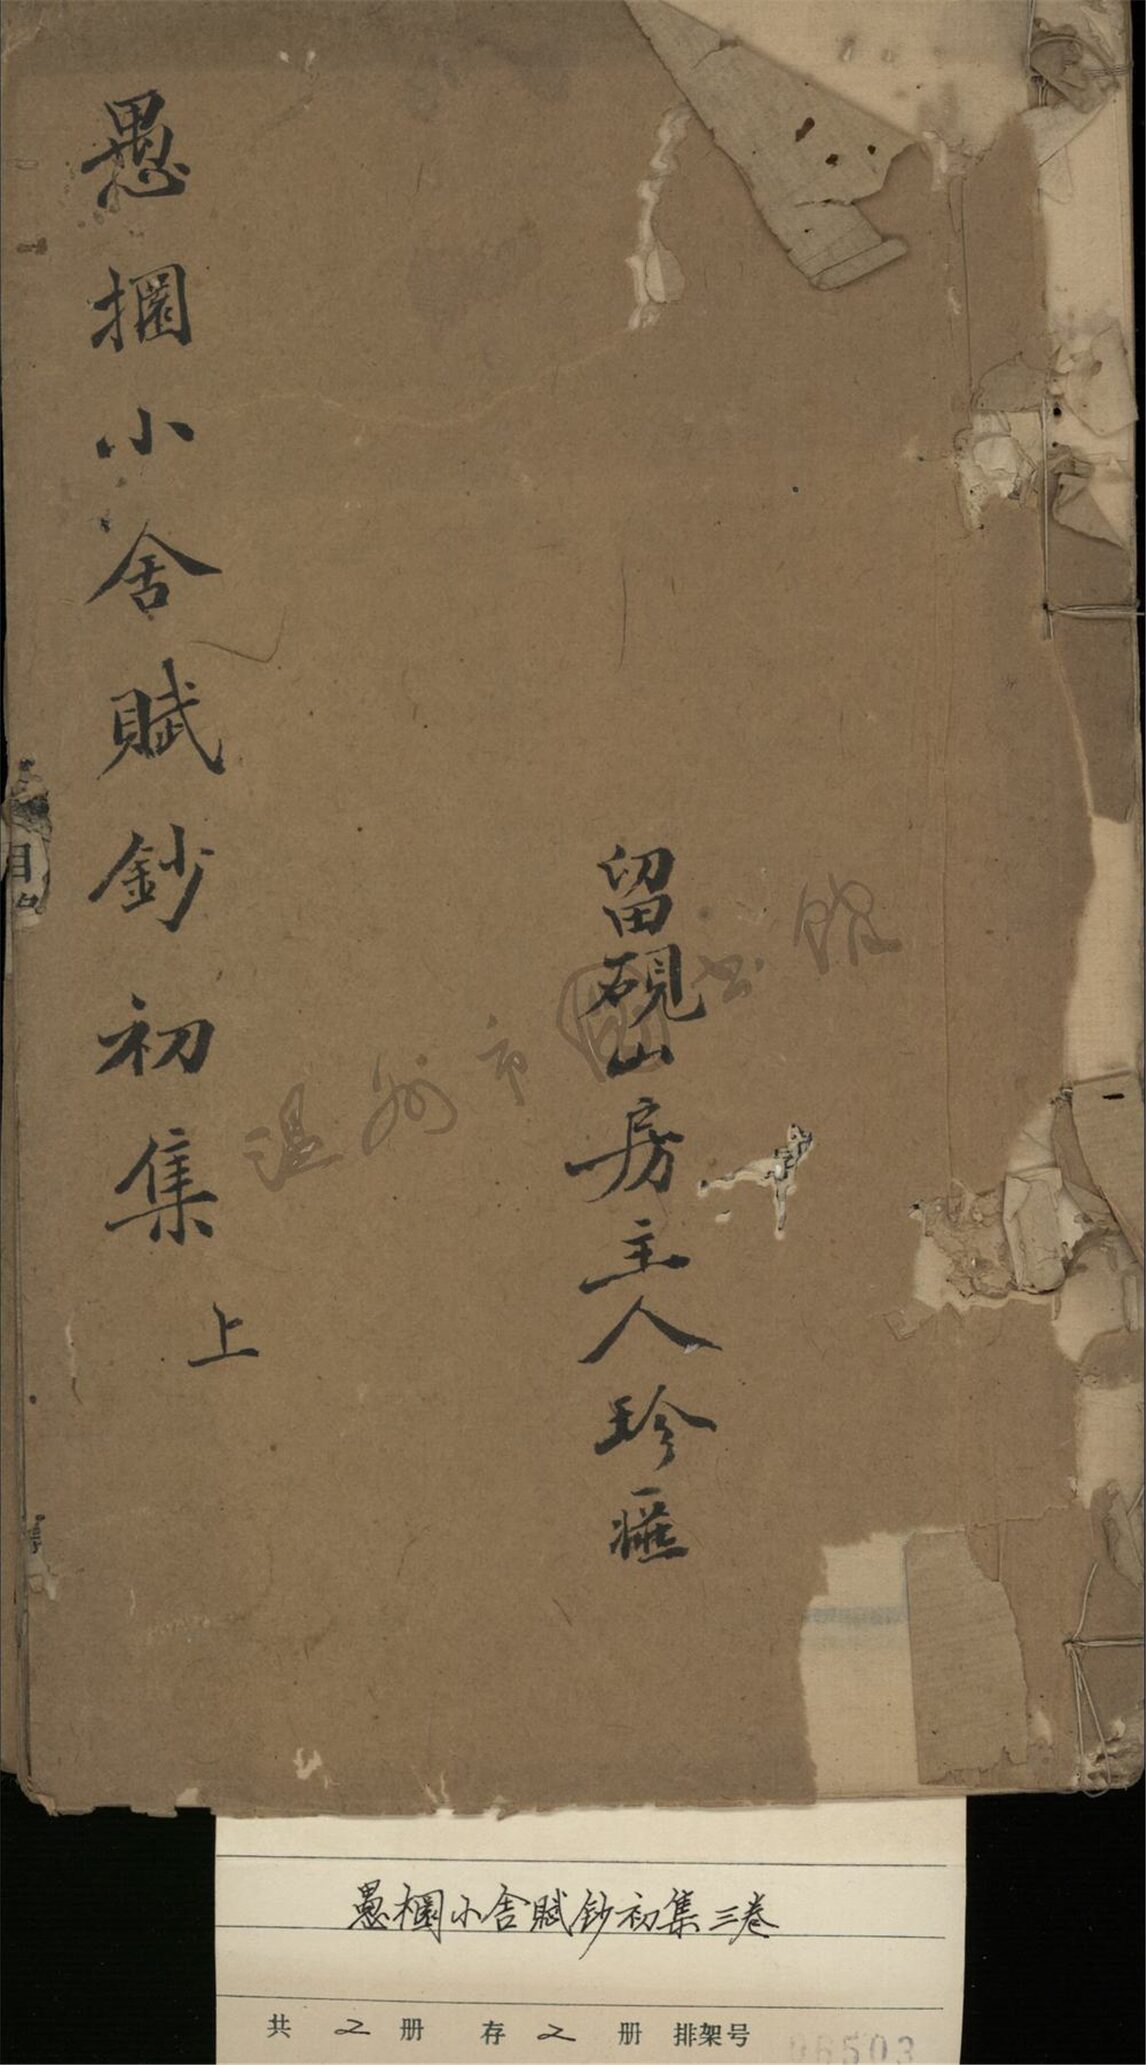 留硯山房主人珍
愚小舍賦鈔初集
上
温州市圖书馆
目
愚小舍賦鈔初集三卷
共 2 册 存 2 册 排架号
06503